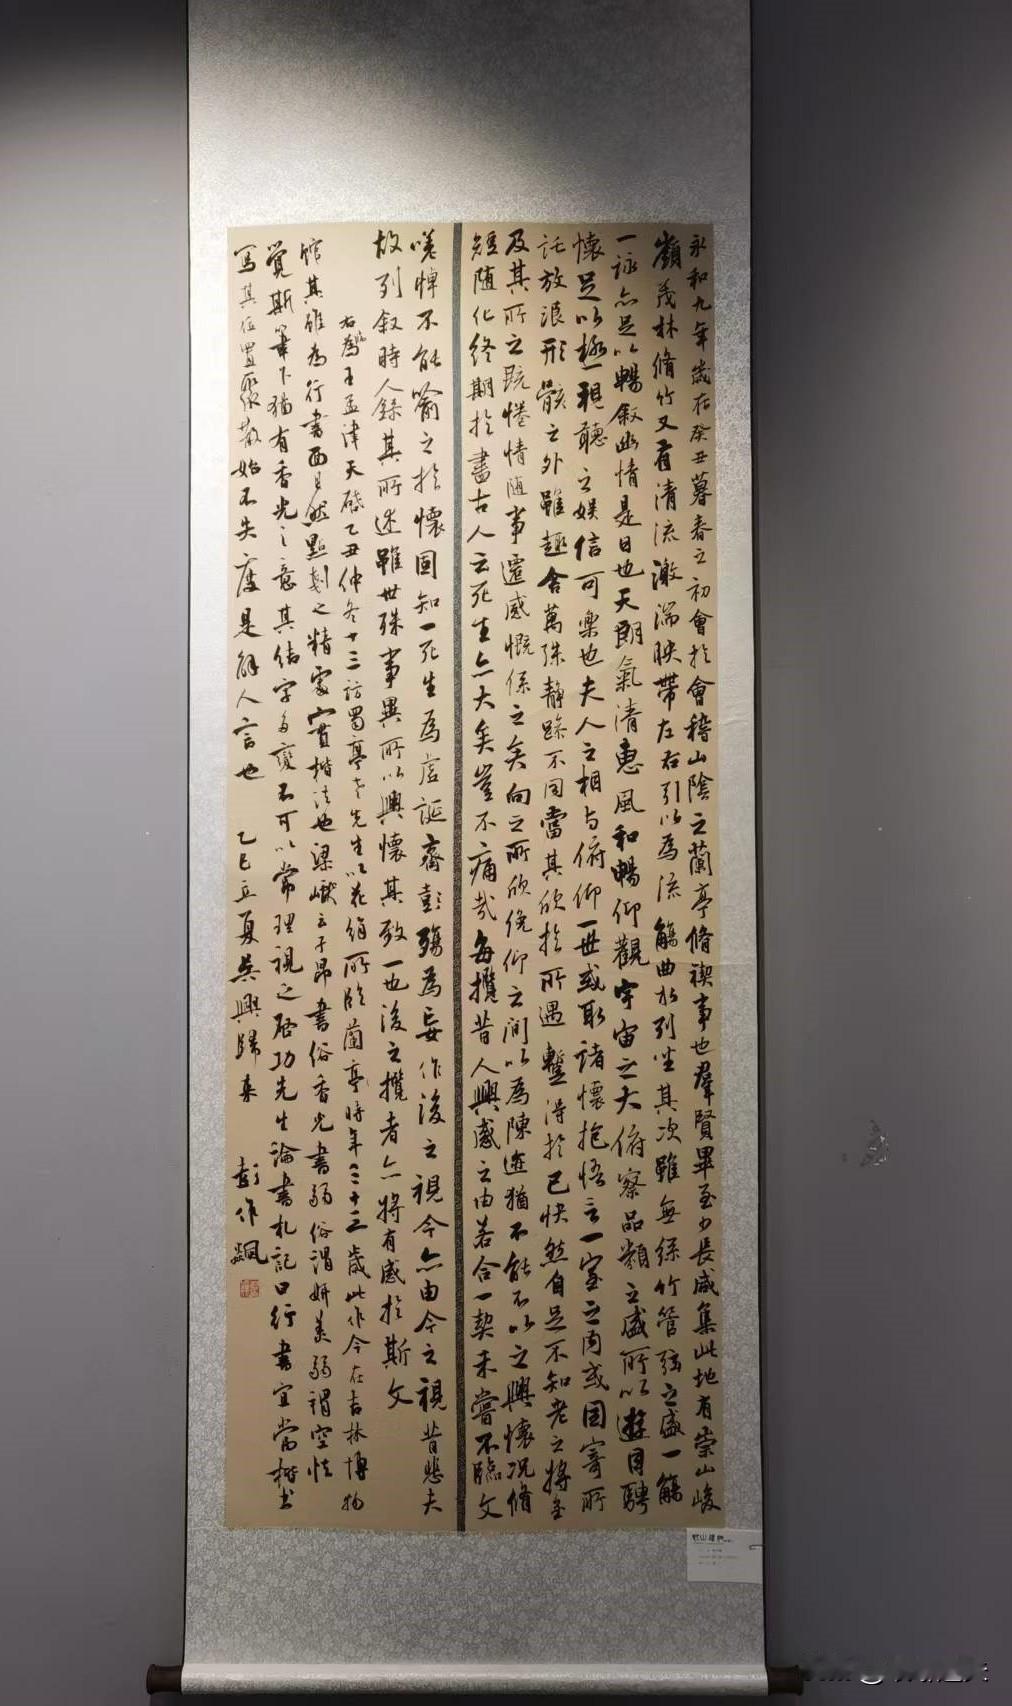 永和九年歲在癸丑暮春之初會於會稽山陰之蘭亭脩禊事也羣賢畢至少長咸集此地有崇山峻
嶺茂林脩竹又有清流激湍映帶左右引以為流觴曲水列坐其次雖無絲竹管弦之盛一觴
一詠亦足以暢敘幽情是日也天朗氣清惠風和暢仰觀宇宙之大俯察品類之盛所以遊目騁
懷足以極視聽之娛信可樂也夫人之相與俯仰一世或取諸懷抱悟言一室之內或因寄所
託放浪形骸之外雖趣舍萬殊靜躁不同當其欣於所遇暫得於己快然自足不知老之將至
及其所之既惓情隨事遷感慨係之矣向之所欣俛仰之間以為陳迹猶不能不以之興懷況脩
短隨化終期於盡古人云死生亦大矣豈不痛哉每攬昔人興感之由若合一契未嘗不臨文
嗟悼不能喻之於懷固知一死生為虛誕齊彭殤為妄作後之視今亦由今之視昔悲夫
故列敘時人錄其所述雖世殊事異所以興懷其致一也後之攬者亦將有感於斯文
右臨王孟津天啟乙丑仲冬十三訪蜀亭老先生以花綃所臨蘭亭時年三十三歲此作今在吉林博物
館其雖為行書面目然點劃之精處實楷法也梁巘云子昂書俗香光書弱俗謂妍美弱謂空怯
覺斯筆下猶有香光之意其結字多變不可以常理視之啟功先生論書札記曰行書宜當楷書
寫其位置聚散始不失度是解人言也 乙巳立夏吳興歸來 彭作飈